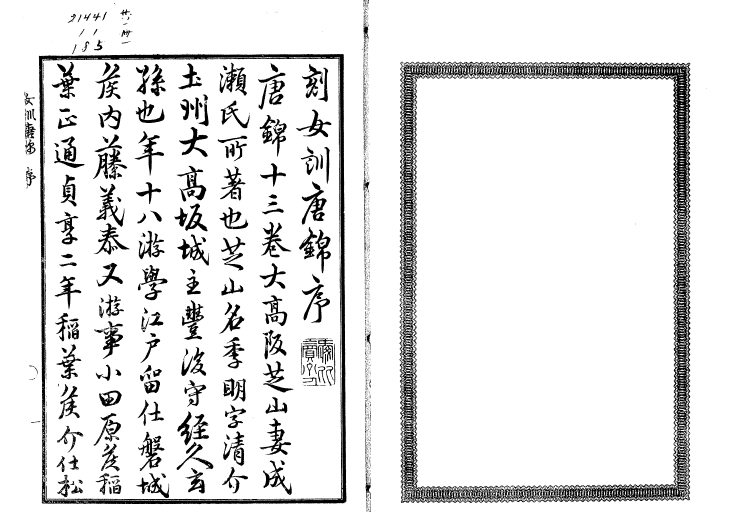 刻女訓唐錦序
唐錦十三巻大高阪芝山妻成
瀬氏所著也芝山名季明字清介
土州大高坂城主豐後守經久玄
孫也年十八游學江戸留仕磐城
侯内藤義泰又游事小田原侯稲
葉正通貞享二年稲葉侯介仕松
女訓唐錦 序
一
21441
11
185